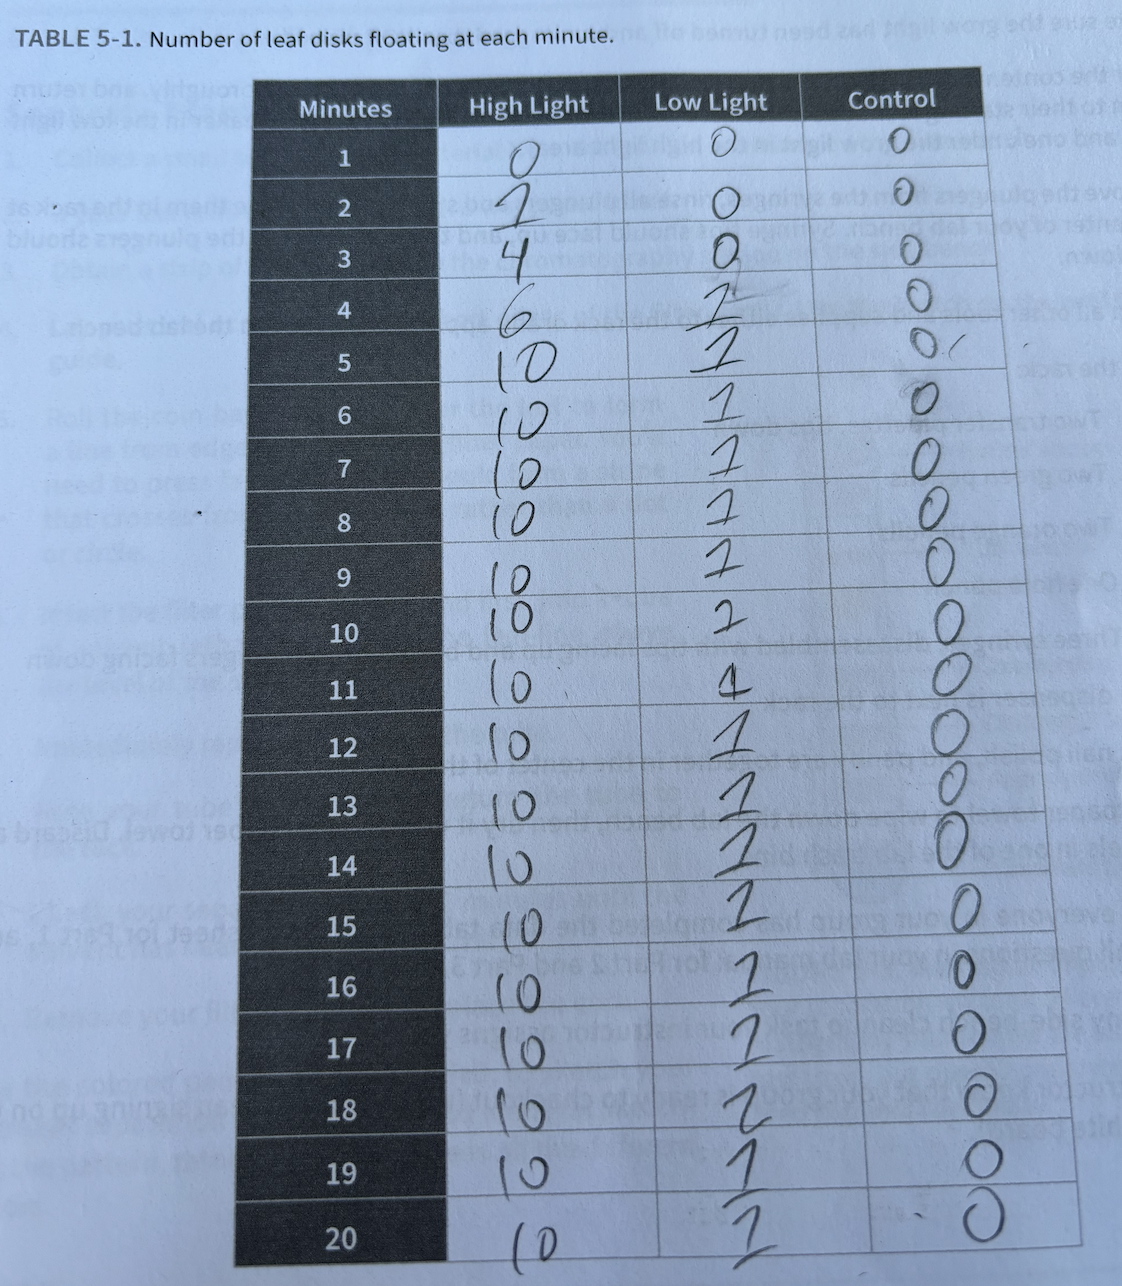 TABLE 5-1. Number of leaf disks floating at each minute.
Minutes High Light Low Light Control
1 0 0 0
2 1 0 0
3 4 0 0
4 6 1 0
5 10 1 0
6 10 1 0
7 10 1 0
8 10 1 0
9 10 1 0
10 10 1 0
11 10 1 0
12 10 1 0
13 10 1 0
14 10 1 0
15 10 1 0
16 10 1 0
17 10 1 0
18 10 1 0
19 10 1 0
20 10 1 0